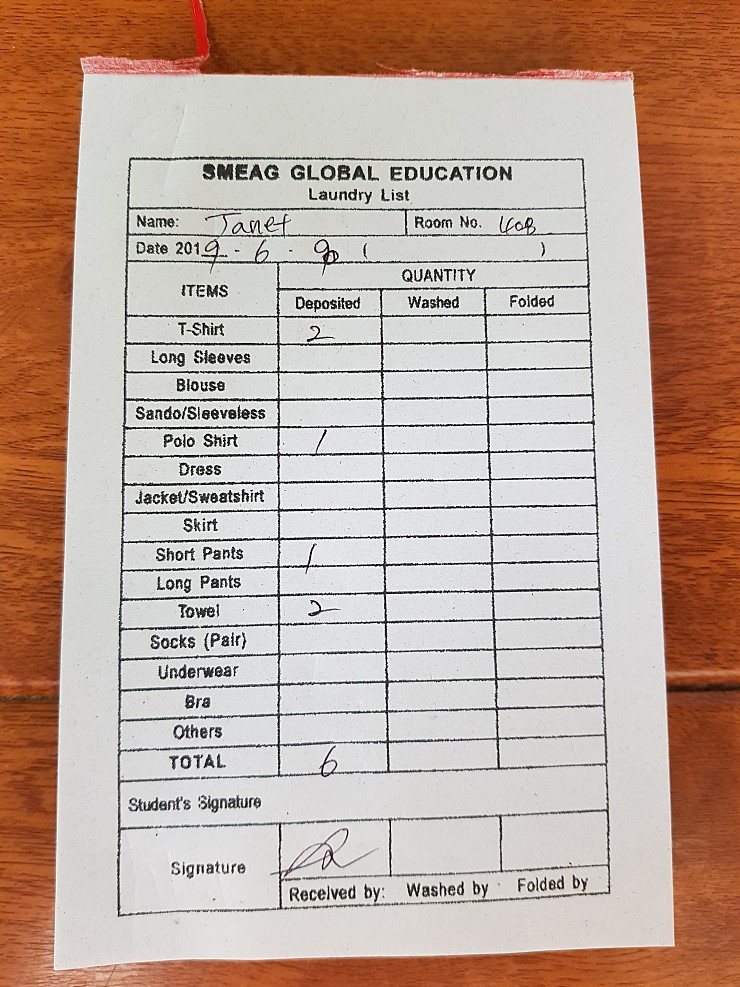 SMEAG GLOBAL EDUCATION
Laundry List
Name: Janet Room No. 408
Date 2019 - 6 - 9 ( )
ITEMS QUANTITY
Deposited Washed Folded
T-Shirt 2
Long Sleeves
Blouse
Sando/Sleeveless
Polo Shirt 1
Dress
Jacket/Sweatshirt
Skirt
Short Pants 1
Long Pants
Towel 2
Socks (Pair)
Underwear
Bra
Others
TOTAL 6
Student's Signature
Signature
Received by: Washed by Folded by